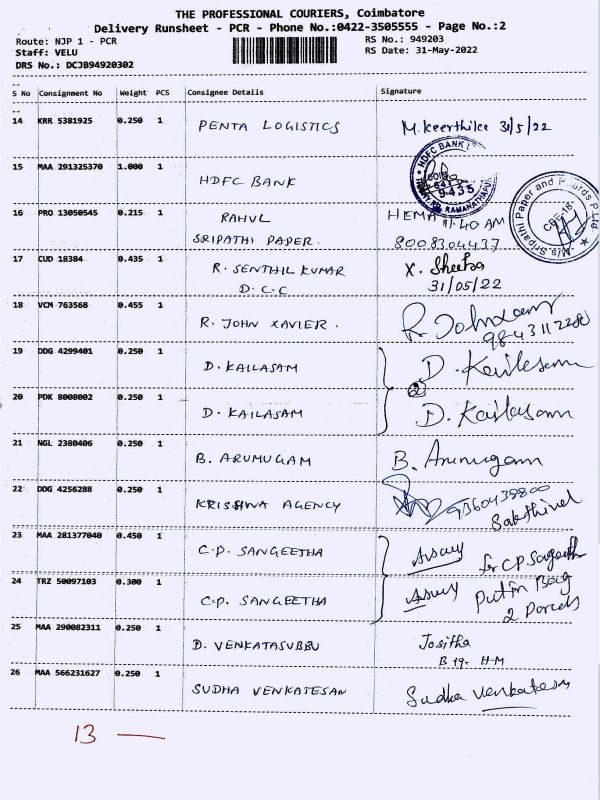 THE PROFESSIONAL COURIERS, Coimbatore
Delivery Runsheet - PCR - Phone No.:0422-3505555 - Page No.:2
Route: NJP 1 - PCR
RS No.: 949203
Staff: VELU
RS Date: 31-May-2022
DRS No.: DCJB94920302
S No Consignment No Weight PCS Consignee Details Signature
14 KRR 5381925 0.250 1 PENTA LOGISTICS M. Keerthika 31/5/22
15 MAA 291325370 1.000 1 HDFC BANK
HDFC BANK
9435
RAMANATHAPUR
16 PRO 13050545 0.215 1 RAHUL HEMA 11:40 AM
SRIPATHI PAPER. 8008304437
M/s. Sripathi Paper and Boards P Ltd
CBE-18
17 CUD 18384 0.435 1 R. SENTHIL KUMAR
D.C.C 31/05/22
18 VCM 763568 0.455 1 R. JOHN XAVIER. R. John
19 DDG 4299401 0.250 1 D. KAILASAM D. Kailasam
2
20 PDK 8008002 0.250 1 D. KAILASAM D. Kailasam
21 NGL 2380406 0.250 1 B. ARUMUGAM B. Arumugam
22 DDG 4256288 0.250 1 KRISHNA AGENCY 9360439800
Sakthivel
23 MAA 281377040 0.450 1 C.P. SANGEETHA for CP Sangeeth
24 TRZ 50097103 0.300 1 C.P. SANGEETHA Put in Bag
2 Parcels
25 MAA 290082311 0.250 1 D. VENKATASUBBU Jositha
B 19. H-M
26 MAA 566231627 0.250 1 SUDHA VENKATESAN Sudha Venkatesan
13 —